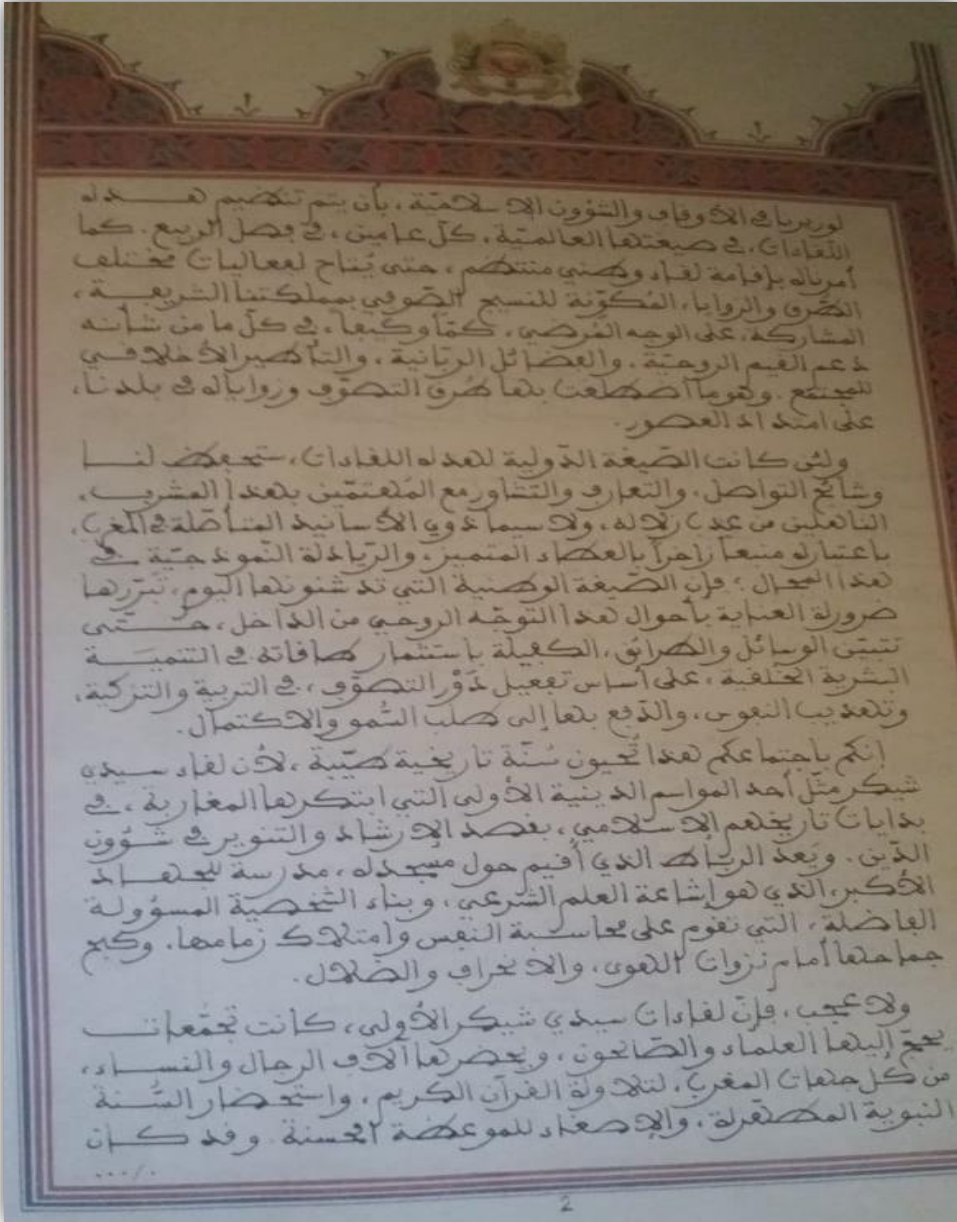 لوزيرنا في الأوقاف والشؤون الإسلامية، بأن يتم تنظيم هذه
اللقاءات، في صيغتها العالمية، كل عامين، في فصل الربيع. كما
أمرناه بإقامة لقاء وطني منتظم، حتى يُتاح لفعاليات مختلف
الطرق والزوايا، المُكوّنة للنسيج الصّوفي بمملكتنا الشريفة،
المشاركة، على الوجه المُرضي، كمّاً وكيفاً، في كلّ ما من شأنه
دعم القيم الروحيّة، والفضائل الربّانية، والتأطير الأخلاقي
للمجتمع. وهو ما اضطلعت بها طُرق التصوّف وزواياه في بلدنا،
على امتداد العصور.
ولئن كانت الصّيغة الدّولية لهذه اللقاءات، ستحفظ لنا
وشائج التواصل، والتعارف والتشاور مع المُهتمّين بهذا المشرب،
الناهلين من عذب زلاله، ولا سيما ذوي الأسانيد المتأصّلة في المغرب،
باعتباره منبعاً زاخراً بالعطاء المتميز، والرّيادة النّموذجيّة في
هذا المجال؛ فإن الصّيغة الوطنية التي تدشنونها اليوم، تبرّرها
ضرورة العناية بأحوال هذا التوجّه الروحي من الدّاخل، حتّى
تتبيّن الوسائل والطرائق، الكفيلة باستثمار طاقاته في التنميـة
البشرية الخُلقية، على أساس تفعيل دَوْر التصوّف، في التربية والتزكية،
وتهذيب النفوس، والدّفع بها إلى طلب السُّمو والاكتمال.
إنكم باجتماعكم هذا تُحيون سُنّة تاريخية طيّبة، لأن لقاء سيدي
شيكر مثّل أحد المواسم الدينية الأولى التي ابتكرها المغاربة، في
بدايات تاريخهم الإسلامي، بقصد الإرشاد والتنوير في شؤون
الدّين. ويَعد الرباط الذي أقيم حول مسجده، مدرسة للجهاد
الأكبر، الذي هو إشاعة العلم الشرعي، وبناء الشّخصيّة المسؤولة
الفاضلة، التي تقوم على محاسبة النفس وامتلاك زمامها، وكبح
جماحها أمام نزوات الهوى، والانحراف والضّلال.
ولا عجب، فإنّ لقاءات سيدي شيكر الأولى، كانت تجمّعات
يحجّ إليها العلماء والصّالحون، ويحضرها آلاف الرجال والنساء،
من كل جهات المغرب، لتلاوة القرآن الكريم، واستحضار السُّنة
النبوية المطهّرة، والإصغاء للموعظة الحسنة. وقد كان
.../.
2